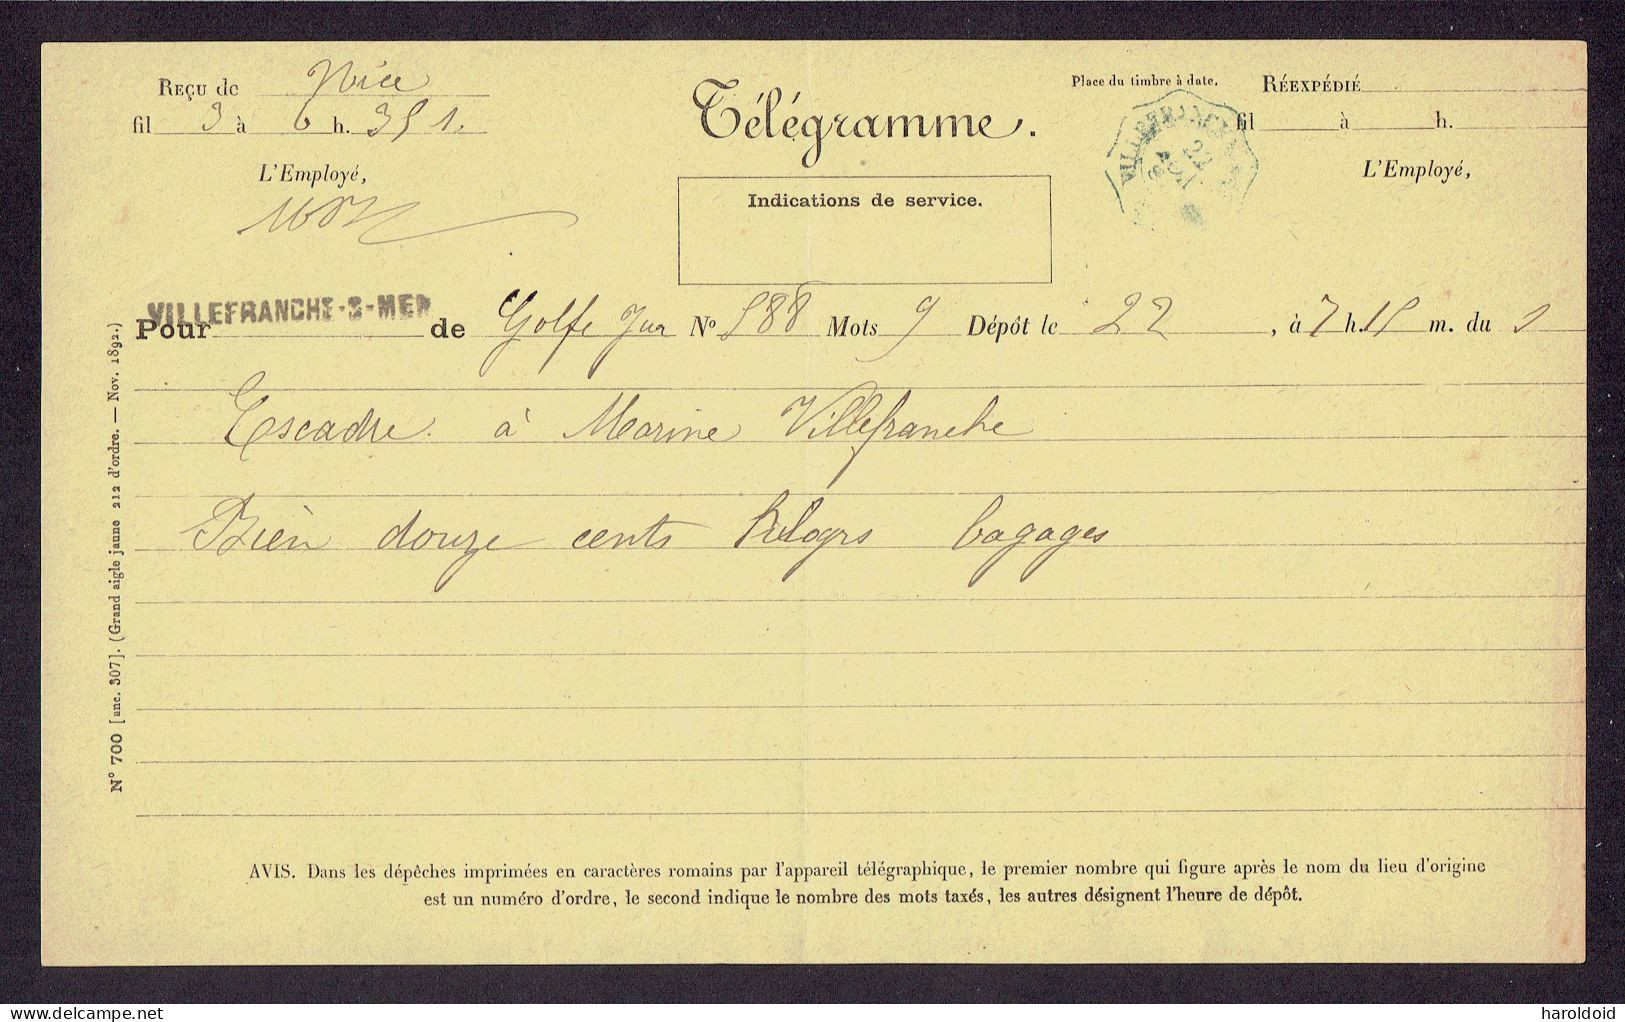 REÇU de Nice
fil 3 à 6 h. 35
L'Employé,
Télégramme.
Indications de service.
Place du timbre à date.
RÉEXPÉDIÉ
fil à h.
L'Employé,
VILLEFRANCHE-S-MER
Pour de Golfe Jua N° 588 Mots 9 Dépôt le 22 , à 7 h. 15 m. du s
Escadre à Marine Villefranche
Bien douze cents kilogrs bagages
N° 700 [anc. 307]. (Grand aigle jaune 212 d'ordre. — Nov. 1892.)
AVIS. Dans les dépêches imprimées en caractères romains par l'appareil télégraphique, le premier nombre qui figure après le nom du lieu d'origine
est un numéro d'ordre, le second indique le nombre des mots taxés, les autres désignent l'heure de dépôt.
delcampe.net
haroldoid